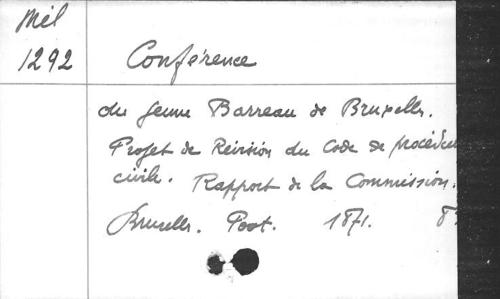 Mél
1292
Conférence
du Jeune Barreau de Bruxelles.
Projet de Révision du Code de procédu
civile. Rapport de la Commission.
Bruxelles. Poot. 1871. 8°